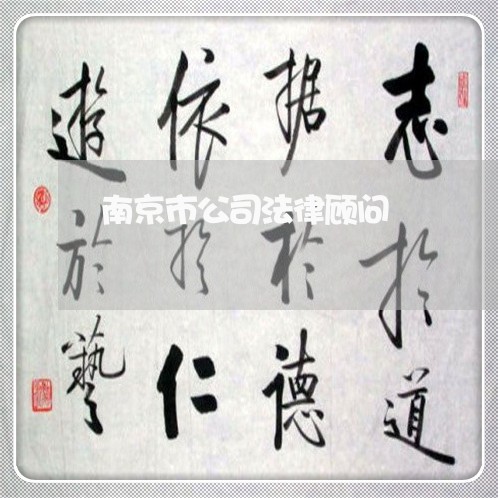 志於道
据於德
依於仁
遊於藝
南京市公司法律顾问